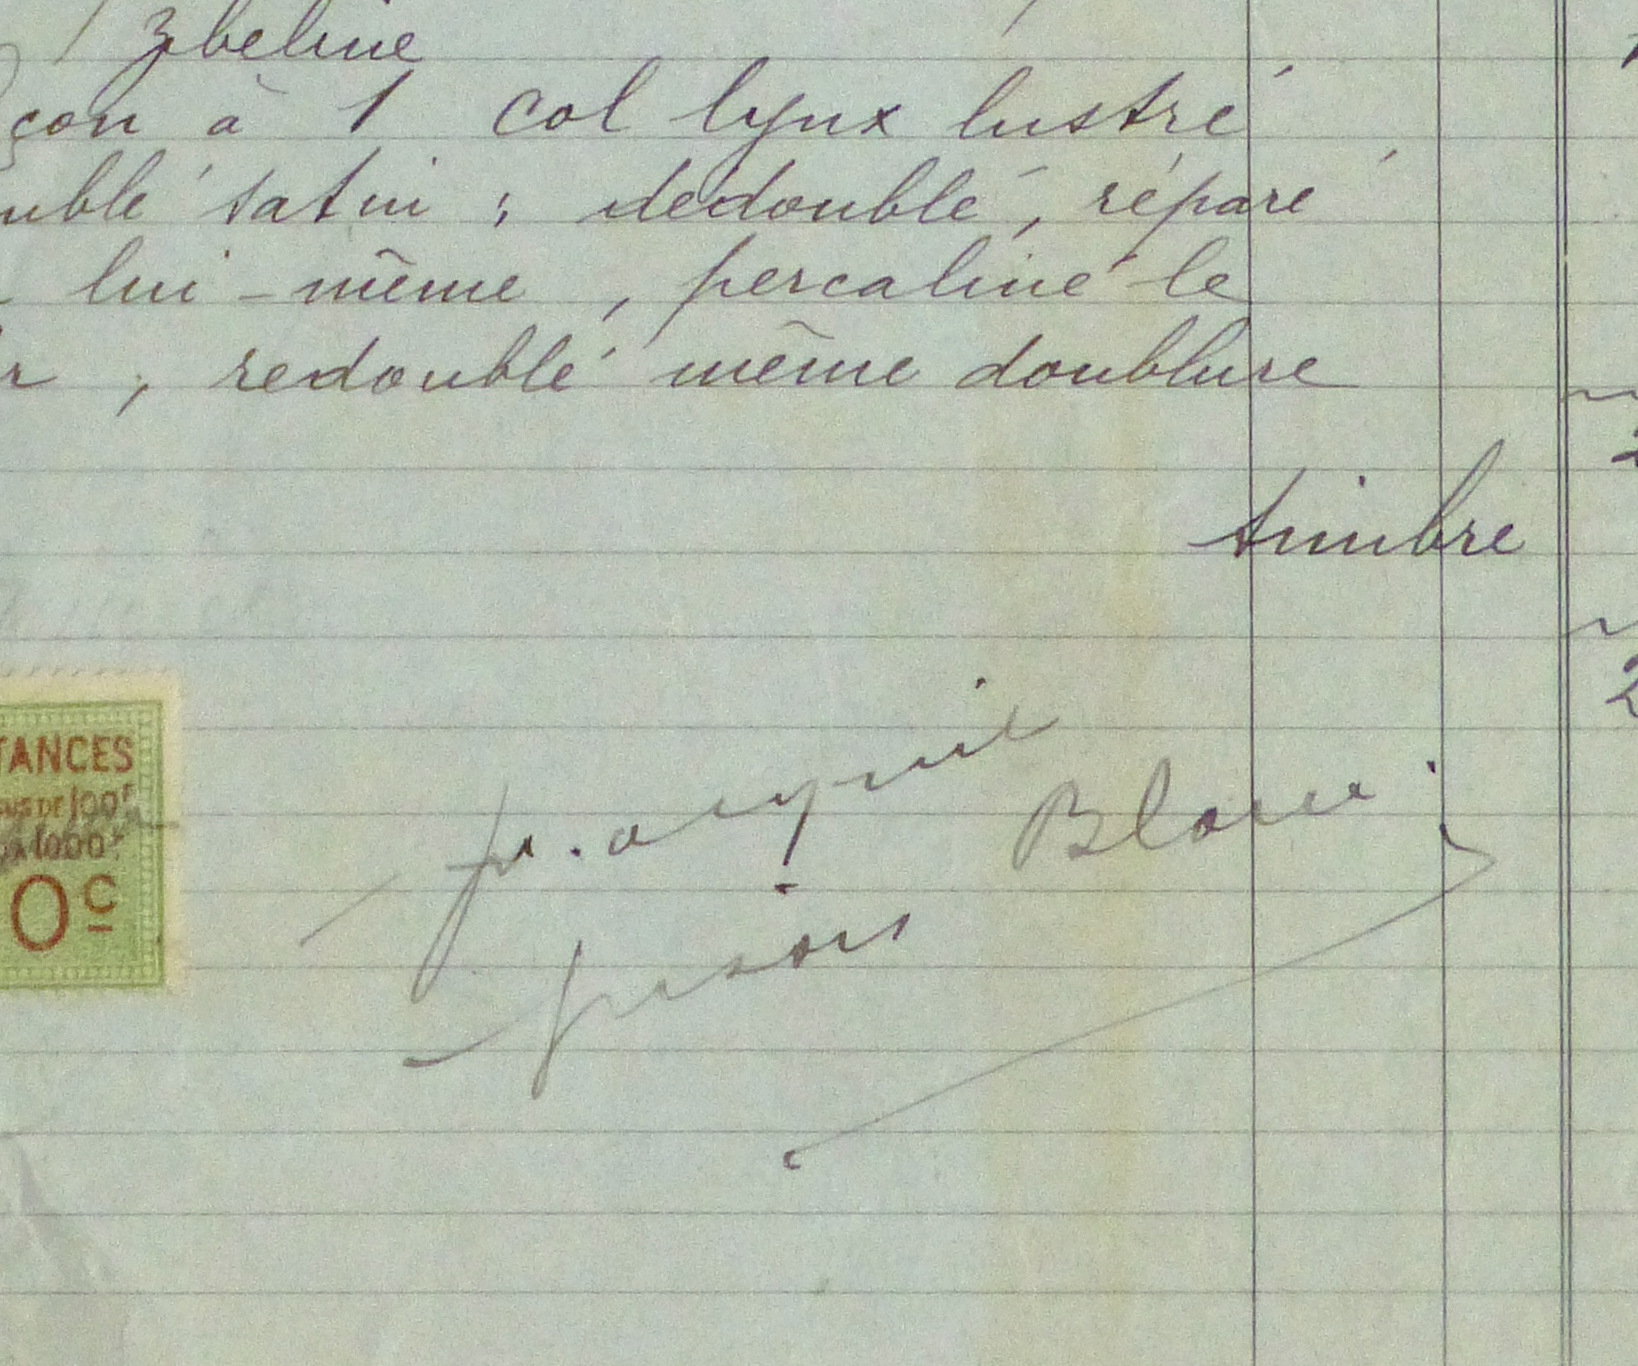 zibeline
çon à 1 col lynx lustré
ublé satin ; dédoublé, réparé
lui-même, percaliné le
r ; redoublé même doublure
timbre
TANCES
SUS DE 100F
1000F
0c
p. acquit
Blois